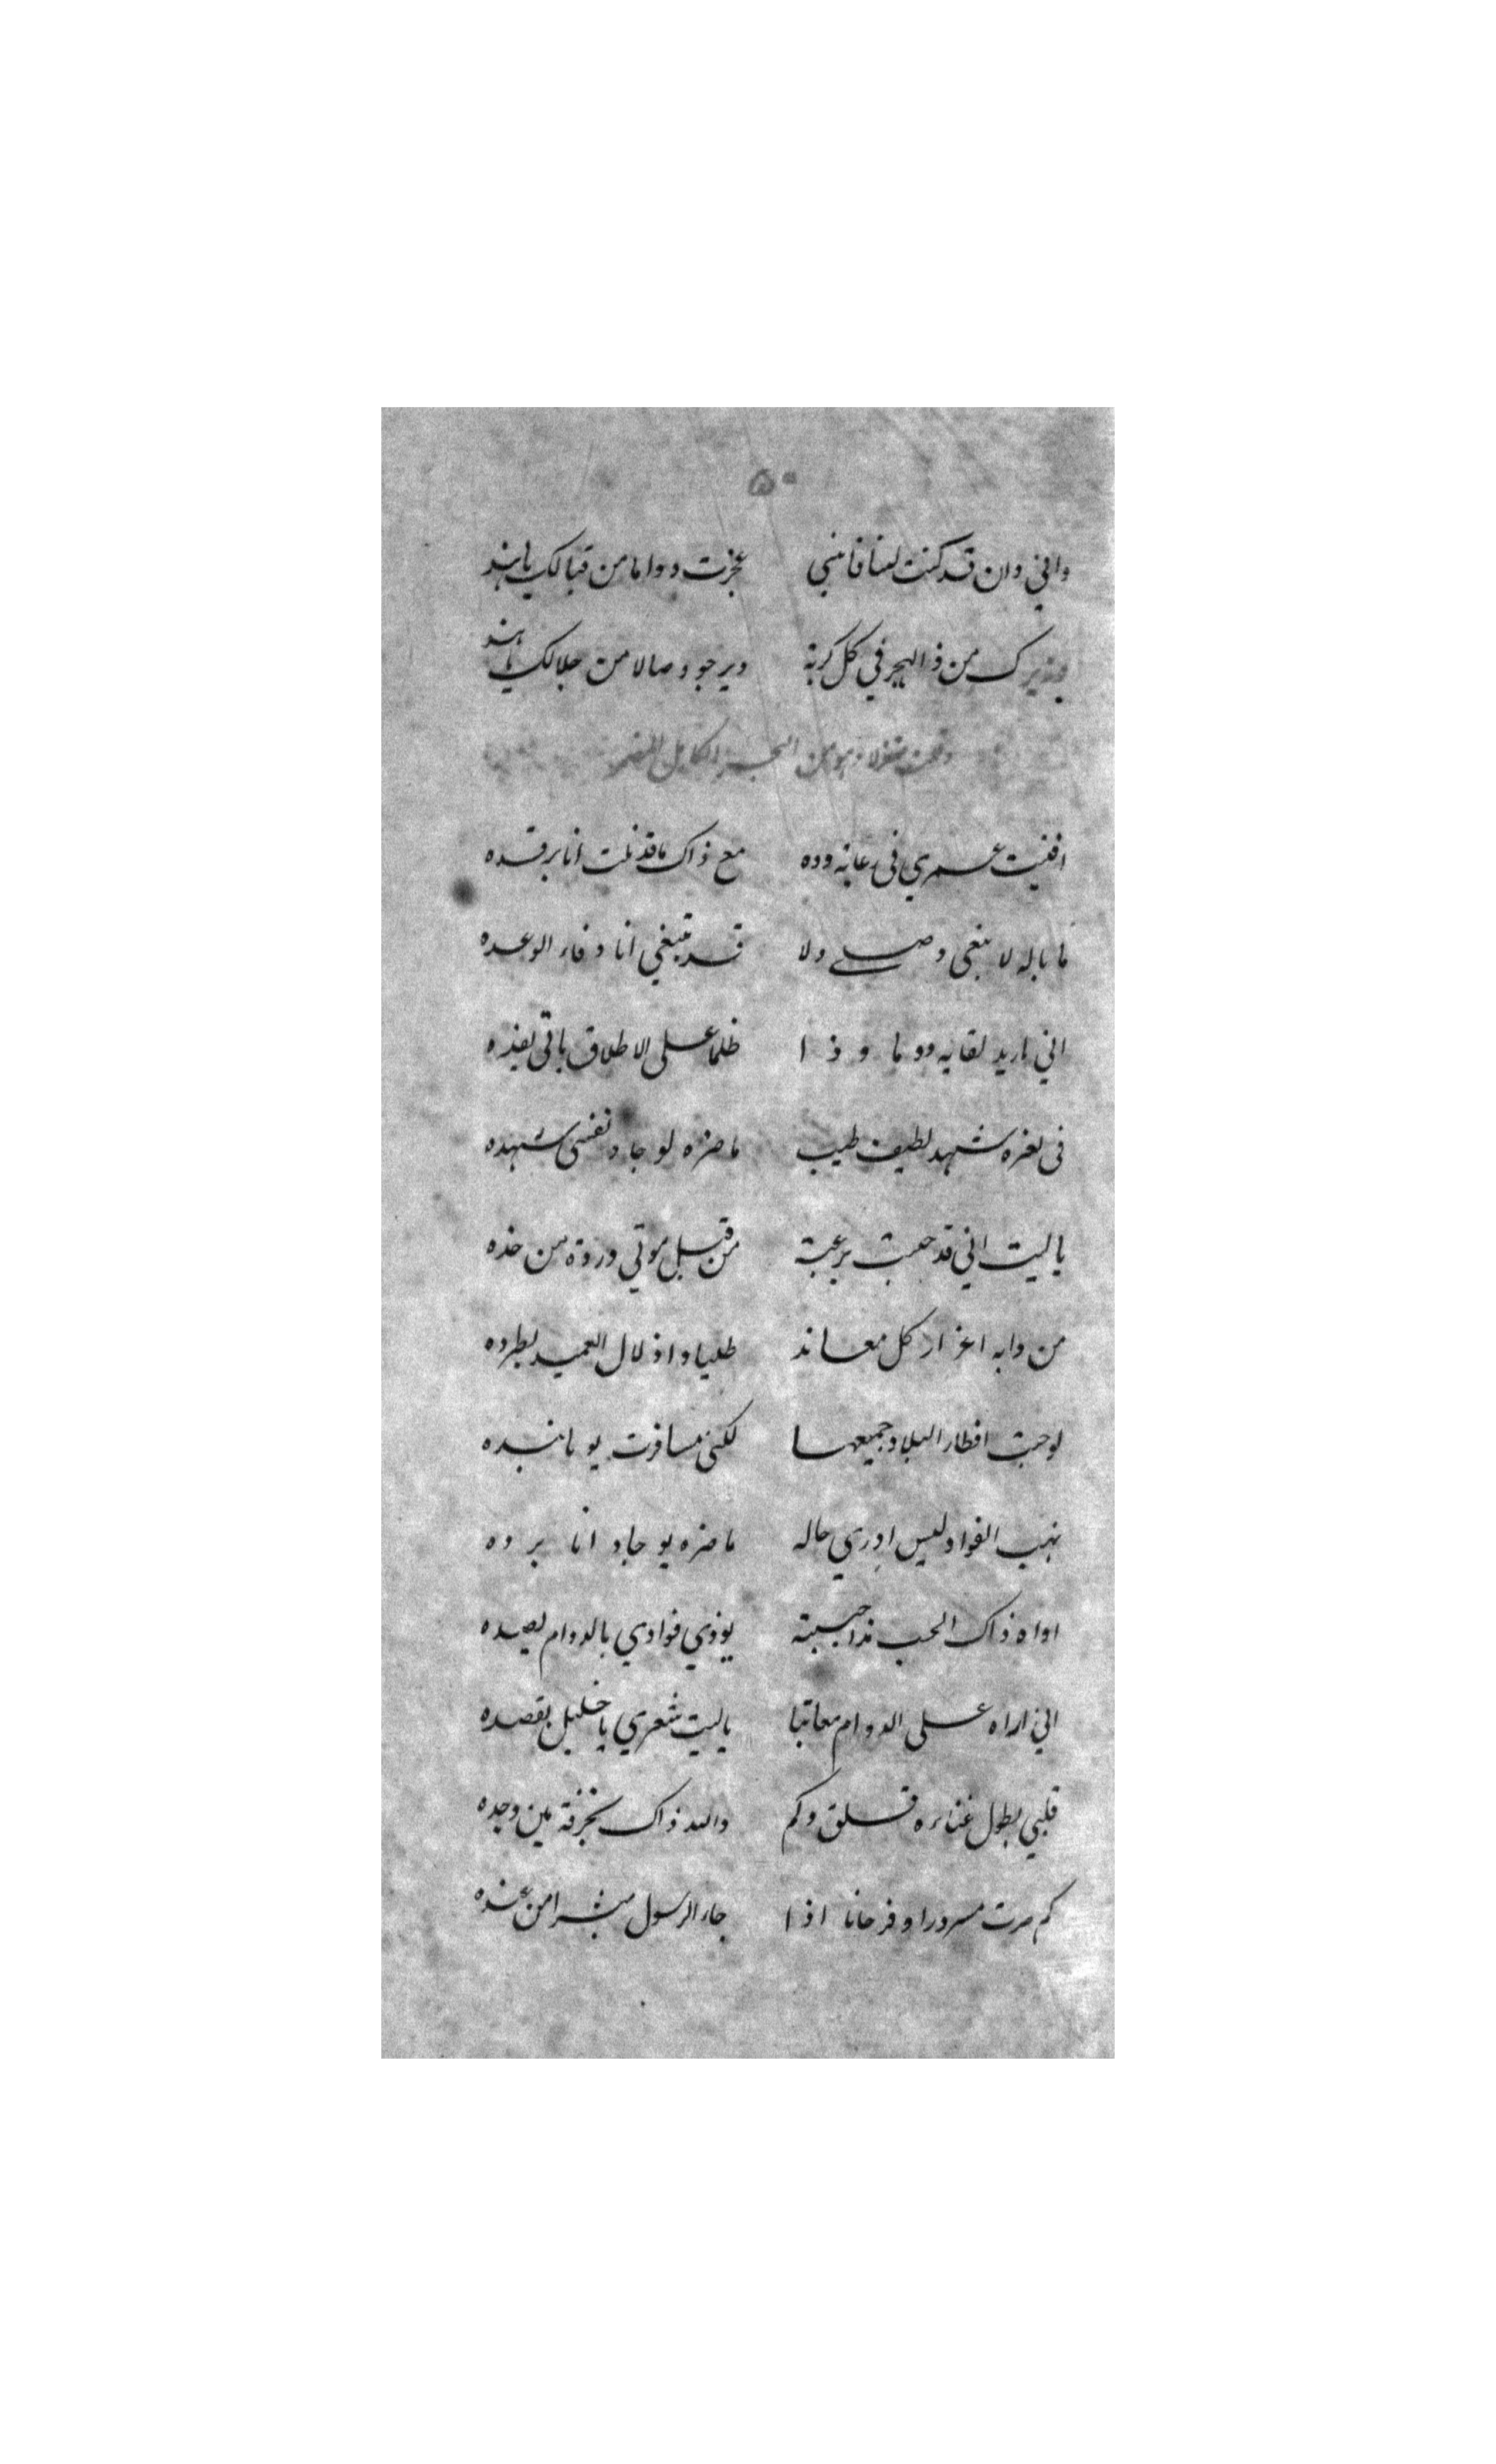 ٥٠
واني وان قد كنت لسنا فانني عجزت دواما من قبالك يا هند
من ذا الهجر في كل كربة ويرجو وصالا من جلالك يا هند
وقلت من البحر الكامل
افنيت عمري في وده مع ذاك ما قد نلت انا برقده
ما باله لا يبغي وصلي ولا قد يبتغي انا وفاء الوعده
اني اريد لقايه دوما وذا ظلما على الاطلاق ياتي بفنده
في ثغره شهد لطيف طيب ما ضره لو جاد نفسي شهده
يا ليت اني قد برغبة من قبل موتي وردة من خده
من دابه اعزاز كل معاند طلبا واذلال العميد بطرده
لو جبت اقطار البلاد جميعها لكن مسافرت يوما
نهب الفواد ليس ادري حاله ما ضره يو جاد انا برده
اواه ذاك الحب مذ احببته يوذي فوادي بالدوام بصده
اني اراه على الدوام معاتبا يا ليت شعري يا خليل بقصده
قلبي بطول عناءه قلق وكم والله ذاك بحرقة من وجده
كم صرت مسرورا وفرحانا اذا جاء الرسول مبشرا من عنده